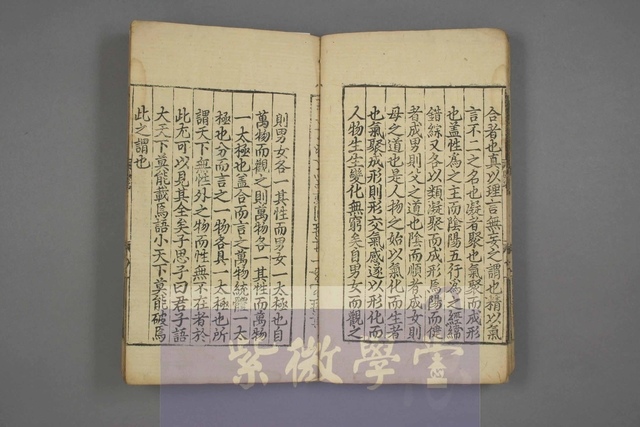 合者也真以理言無妄之謂也精以氣
言不二之名也凝者聚也氣聚而成形
也盖性為之主而陰陽五行為之經緯
錯綜又各以類凝聚而成形焉陽而健
者成男則父之道也陰而順者成女則
母之道也是人物之始以氣化而生者
也氣聚成形則形交氣感遂以形化而
人物生生變化無窮矣自男女而觀之
則男女各一其性而男女一太極也自
萬物而觀之則萬物各一其性而萬物
一太極也蓋合而言之萬物統體一太
極也分而言之一物各具一太極也所
謂天下無性外之物而性無不在者於
此尤可以見其全矣子思子曰君子語
大天下莫能載焉語小天下莫能破焉
此之謂也
紫微學堂